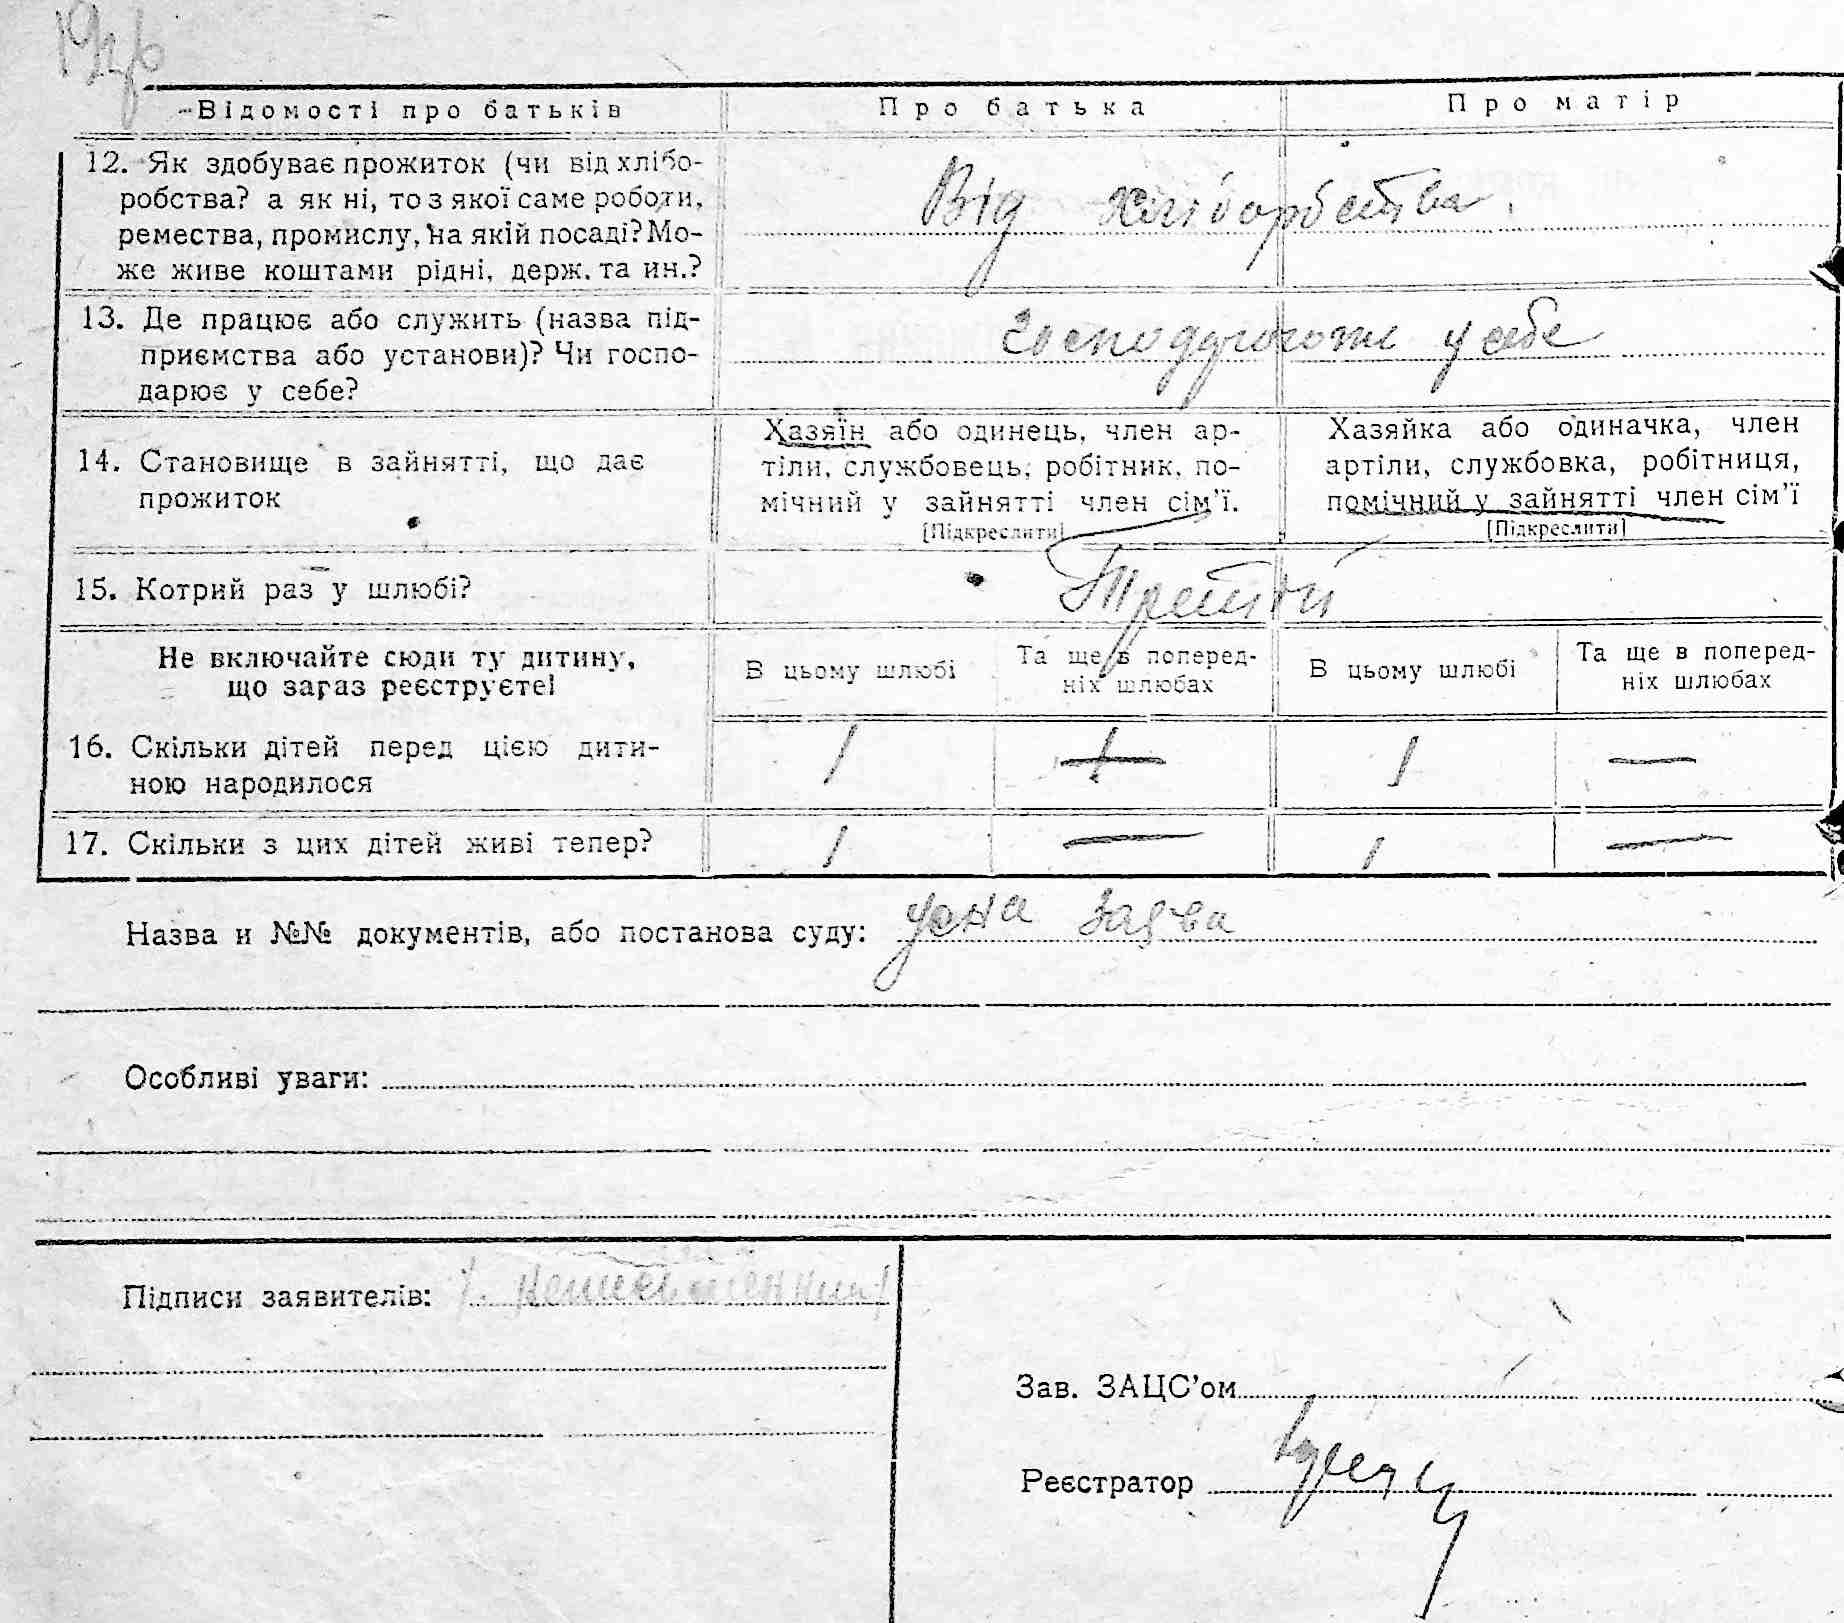 Відомості про батьків Про батька Про матір
12. Як здобуває прожиток (чи від хлібо-
робства? а як ні, то з якої саме роботи,
ремества, промислу, на якій посаді? Мо-
же живе коштами рідні, держ. та ин.?
Від хліборобства.
13. Де працює або служить (назва під-
приємства або установи)? Чи госпо-
дарює у себе?
у себе
14. Становище в зайнятті, що дає
прожиток
Хазяїн або одинець, член ар-
тіли, службовець, робітник, по-
мічний у зайнятті член сім’ї.
[Підкреслити]
Хазяйка або одиначка, член
артіли, службовка, робітниця,
помічний у зайнятті член сім’ї
[Підкреслити]
15. Котрий раз у шлюбі?
Третій
Не включайте сюди ту дитину,
що зараз реєструєте!
В цьому шлюбі
Та ще в поперед-
ніх шлюбах
В цьому шлюбі
Та ще в поперед-
ніх шлюбах
16. Скільки дітей перед цією дити-
ною народилося
1 — 1 —
17. Скільки з цих дітей живі тепер?
1 — 1 —
Назва и №№ документів, або постанова суду: усна заява
Особливі уваги:
Підписи заявителів:
Зав. ЗАЦС’ом
Реєстратор